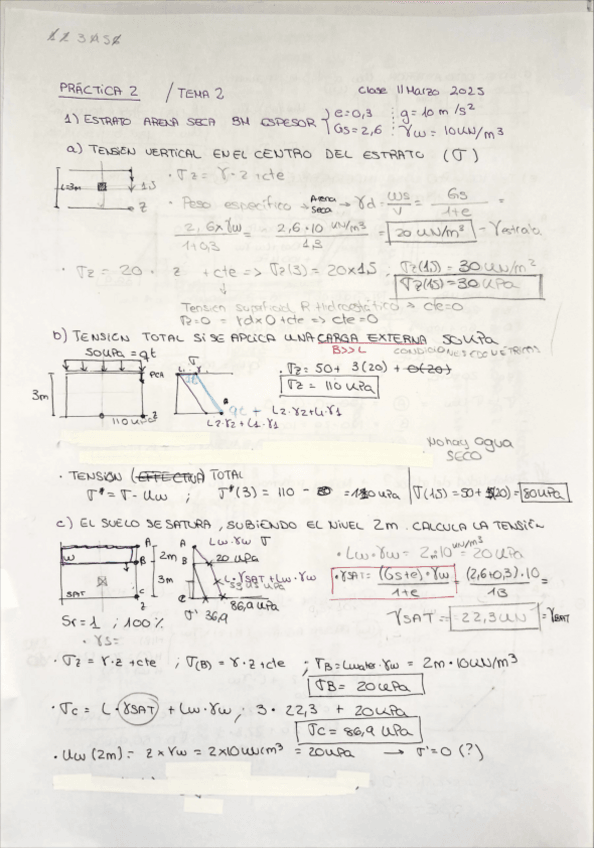 PRÁCTICA 2 / TEMA 2 Clase 11 Marzo 2025
1) ESTRATO ARENA SECA 3M ESPESOR { e=0,3 g=10 m/s²
Gs=2,6 γw=10 kN/m3
a) TENSIÓN VERTICAL EN EL CENTRO DEL ESTRATO (σ)
L=3m 1,5 z
· σz = γ·z + cte
· Peso específico → Arena seca → γd = Ws/V = Gs/1+e =
2,6xγw/1+0,3 = 2,6·10 kN/m³/1,3 = 20 kN/m³ - γestrato
· σz = 20 · z + cte => σz(3) = 20x1,5 ; σz(1,5) = 30 kN/m²
σz(1,5) = 30 kPa
Tensión superficial, P. Hidrostático => cte=0
z=0 = γd x 0 + cte => cte=0
b) TENSIÓN TOTAL SI SE APLICA UNA CARGA EXTERNA 50 kPa
B>>L CONDICIONES EDOMÉTRICAS
50 kPa = qt
3m 110 kPa z
σ
qt + L2·γ2+L1·γ1
L2·γ2+L1·γ1
· σz = 50 + 3(20) + 0(20)
σz = 110 kPa
No hay agua
SECO
· TENSIÓN (EFFECTIVA) TOTAL
σ* = σ - uw ; σ*(3) = 110 - = 110 kPa σ(1,5) = 50 + (20) = 80 kPa
c) EL SUELO SE SATURA, SUBIENDO EL NIVEL 2m. CALCULA LA TENSIÓN
W A B 2m 3m SAT C z
A Lw·γw σ
B 20 kPa
L·γSAT + Lw·γw
C 86,9 kPa
σ' 36,9
· Lw·γw = 2m·10 kN/m³ = 20 kPa
· γSAT = (Gs+e)·γw/1+e = (2,6+0,3)·10/1,3 =
γSAT = 22,3 kN = γSAT
Sr = 1 ; 100%
· γs =
· σz = γ·z + cte ; σ(B) = γ·z + cte ; σB = Lwater·γw = 2m·10 kN/m³
σB = 20 kPa
· σc = L·γSAT + Lw·γw ; 3·22,3 + 20 kPa
σc = 86,9 kPa
· uw (2m) = 2xγw = 2x10 kN/m³ = 20 kPa → σ'=0 (?)